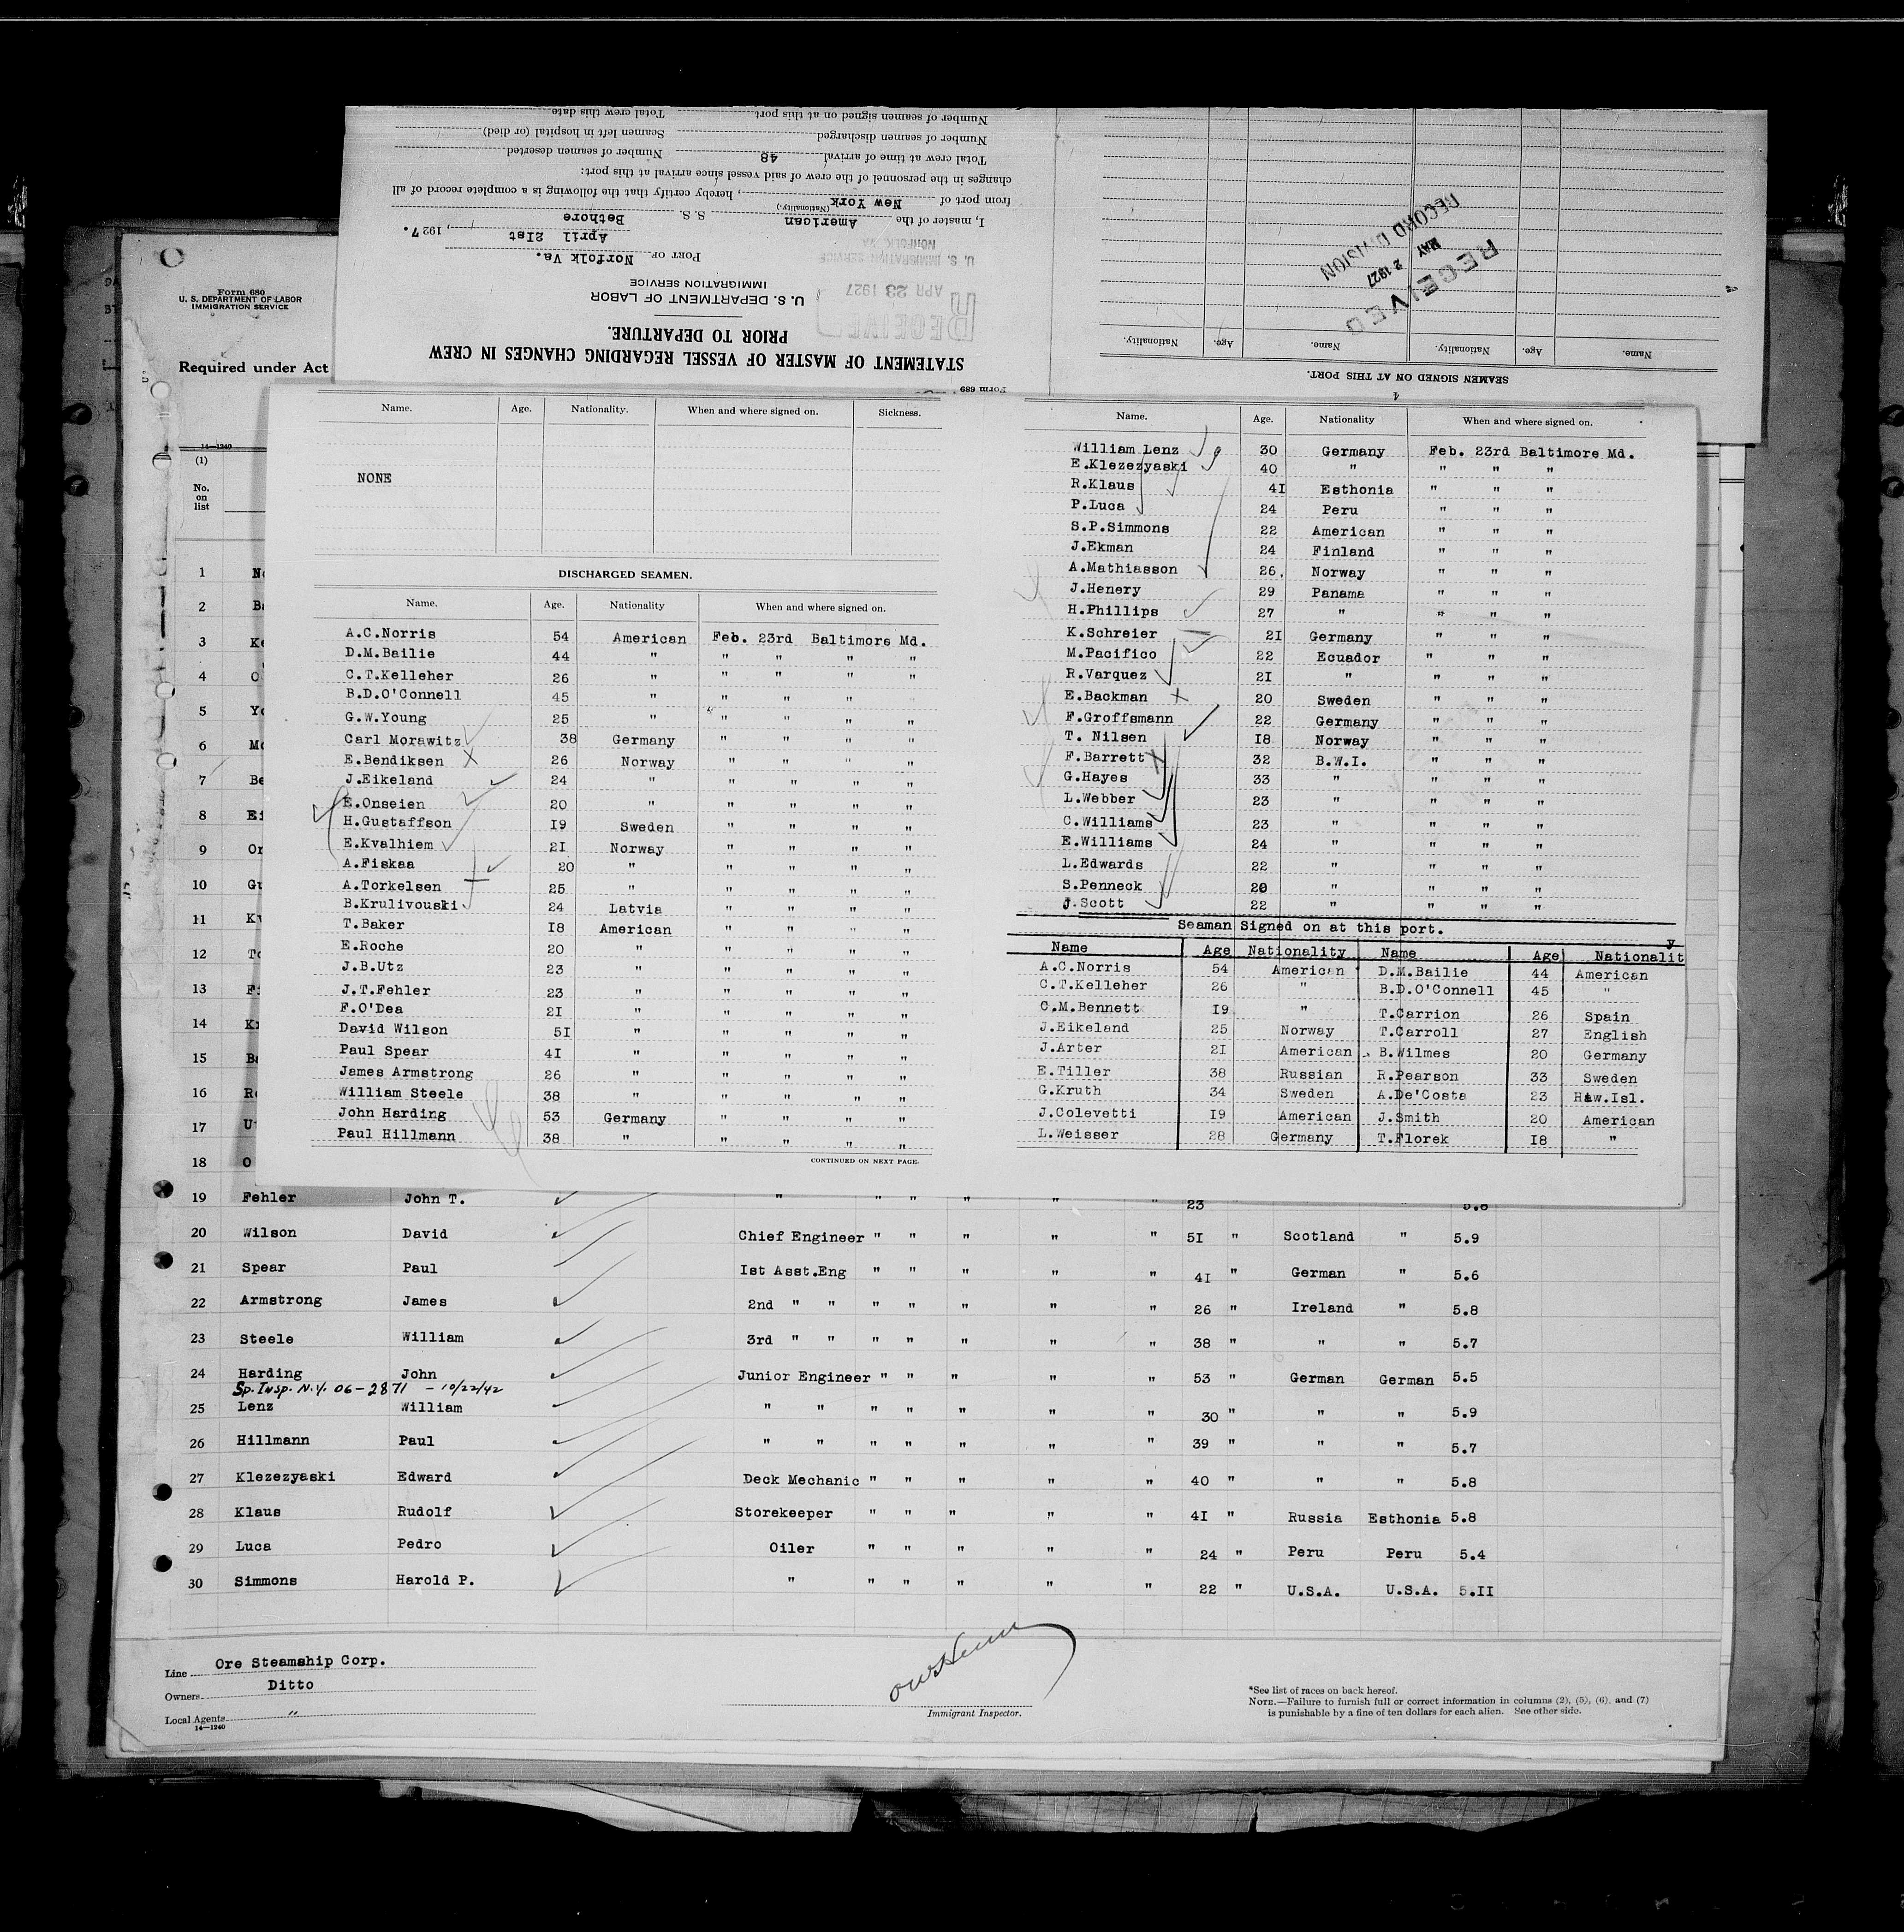 Form 689
STATEMENT OF MASTER OF VESSEL REGARDING CHANGES IN CREW
PRIOR TO DEPARTURE.
U. S. DEPARTMENT OF LABOR
IMMIGRATION SERVICE
RECEIVED
APR 23 1927
U. S. IMMIGRATION SERVICE
NORFOLK VA
PORT OF Norfolk Va.
April 2Ist, 1927.
I, master of the American S. S. Bethore
(Nationality.)
from port of New York, hereby certify that the following is a complete record of all
changes in the personnel of the crew of said vessel since arrival at this port:
Total crew at time of arrival 48 Number of seamen deserted
Number of seamen discharged Seamen left in hospital (or died)
Number of seamen signed on at this port Total crew this date
4
SEAMEN SIGNED ON AT THIS PORT.
Name. Age. Nationality. Name. Age. Nationality.
RECEIVED
MAY 2 1927
RECORD DIVISION
Form 680
U. S. DEPARTMENT OF LABOR
IMMIGRATION SERVICE
Required under Act
14—1240
(1)
No.
on
list
1
2
3
4
5
6
7
8
9
10
11
12
13
14
15
16
17
18
Name. Age. Nationality. When and where signed on. Sickness.
NONE
DISCHARGED SEAMEN.
Name. Age. Nationality When and where signed on.
A.C.Norris 54 American Feb. 23rd Baltimore Md.
D.M.Bailie 44 " " " " "
C.T.Kelleher 26 " " " " "
B.D.O'Connell 45 " " " " "
G.W.Young 25 " " " " "
Carl Morawitz 38 Germany " " " "
E.Bendiksen 26 Norway " " " "
J.Eikeland 24 " " " " "
E.Onseien 20 " " " " "
H.Gustaffson I9 Sweden " " " "
E.Kvalhiem 2I Norway " " " "
A.Fiskaa 20 " " " " "
A.Torkelsen 25 " " " " "
B.Krulivouski 24 Latvia " " " "
T.Baker I8 American " " " "
E.Roche 20 " " " " "
J.B.Utz 23 " " " " "
J.T.Fehler 23 " " " " "
F.O'Dea 2I " " " " "
David Wilson 5I " " " " "
Paul Spear 4I " " " " "
James Armstrong 26 " " " " "
William Steele 38 " " " " "
John Harding 53 Germany " " " "
Paul Hillmann 38 " " " " "
CONTINUED ON NEXT PAGE.
Name. Age. Nationality When and where signed on.
William Lenz 30 Germany Feb. 23rd Baltimore Md.
E.Klezezyaski 40 " " " "
R.Klaus 4I Esthonia " " "
P.Luca 24 Peru " " "
S.P.Simmons 22 American " " "
J.Ekman 24 Finland " " "
A.Mathiasson 26. Norway " " "
J.Henery 29 Panama " " "
H.Phillips 27 " " " "
K.Schreier 2I Germany " " "
M.Pacifico 22 Ecuador " " "
R.Varquez 2I " " " "
E.Backman 20 Sweden " " "
F.Groffsmann 22 Germany " " "
T. Nilsen I8 Norway " " "
F.Barrett 32 B.W.I. " " "
G.Hayes 33 " " " "
L.Webber 23 " " " "
C.Williams 23 " " " "
E.Williams 24 " " " "
L.Edwards 22 " " " "
S.Penneck 20 " " " "
J.Scott 22 " " " "
Seaman Signed on at this port.
Name Age Nationality Name Age Nationality
A.C.Norris 54 American D.M.Bailie 44 American
C.T.Kelleher 26 " B.D.O'Connell 45 "
C.M.Bennett I9 " T.Carrion 26 Spain
J.Eikeland 25 Norway T.Carroll 27 English
J.Arter 2I American B.Wilmes 20 Germany
E.Tiller 38 Russian R.Pearson 33 Sweden
G.Kruth 34 Sweden A.De'Costa 23 Haw.Isl.
J.Colevetti I9 American J.Smith 20 American
L.Weisser 28 Germany T.Florek I8 "
19 Fehler John T. " " " " " " 23 5.8
20 Wilson David Chief Engineer " " " " " 5I " Scotland " 5.9
21 Spear Paul Ist Asst.Eng " " " " " 4I " German " 5.6
22 Armstrong James 2nd " " " " " " " 26 " Ireland " 5.8
23 Steele William 3rd " " " " " " " 38 " " " 5.7
24 Harding John Junior Engineer " " " " " 53 " German German 5.5
Sp. Insp. N.Y. 06-2871 - 10/22/42
25 Lenz William " " " " " " " 30 " " " 5.9
26 Hillmann Paul " " " " " " " 39 " " " 5.7
27 Klezezyaski Edward Deck Mechanic " " " " " 40 " " " 5.8
28 Klaus Rudolf Storekeeper " " " " " 4I " Russia Esthonia 5.8
29 Luca Pedro Oiler " " " " " 24 " Peru Peru 5.4
30 Simmons Harold P. " " " " " " 22 " U.S.A. U.S.A. 5.II
Line Ore Steamship Corp.
Owners Ditto
Local Agents "
14—1240
Immigrant Inspector.
*See list of races on back hereof.
NOTE.—Failure to furnish full or correct information in columns (2), (5), (6), and (7)
is punishable by a fine of ten dollars for each alien. See other side.